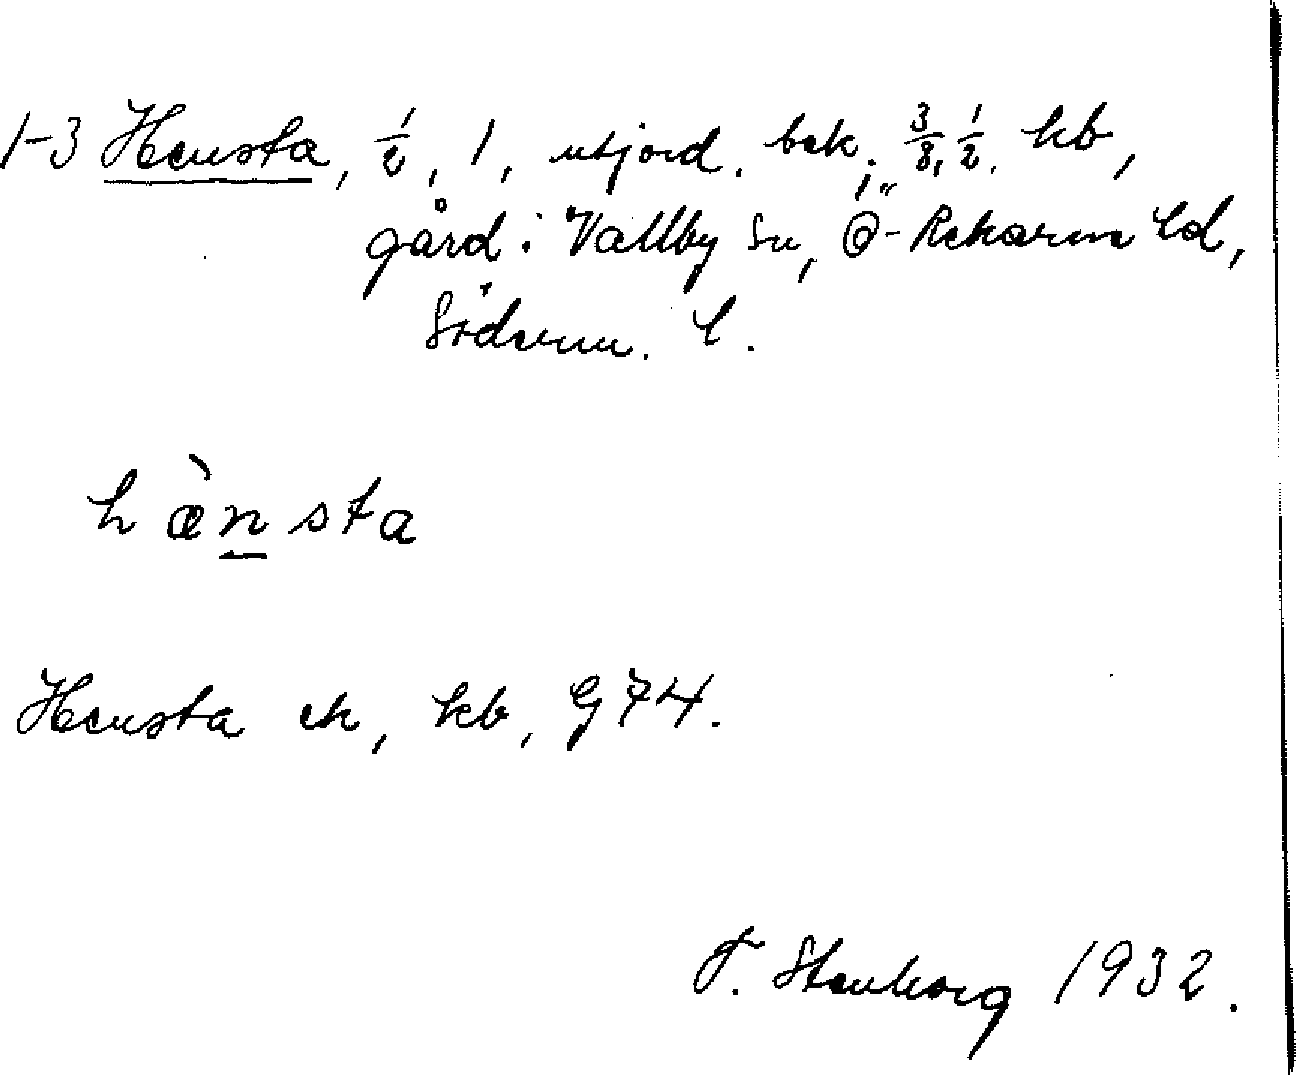 1-3 Hensta, 1/2, 1, utjord, bsk; 3/8, 1/2, kb,
gård i Vallby sn, Ö-Rekarne hd,
Söderm. l.
hæ̀n̲sta
Hensta ek, kb, G 74.
F. Stenborg 1932.